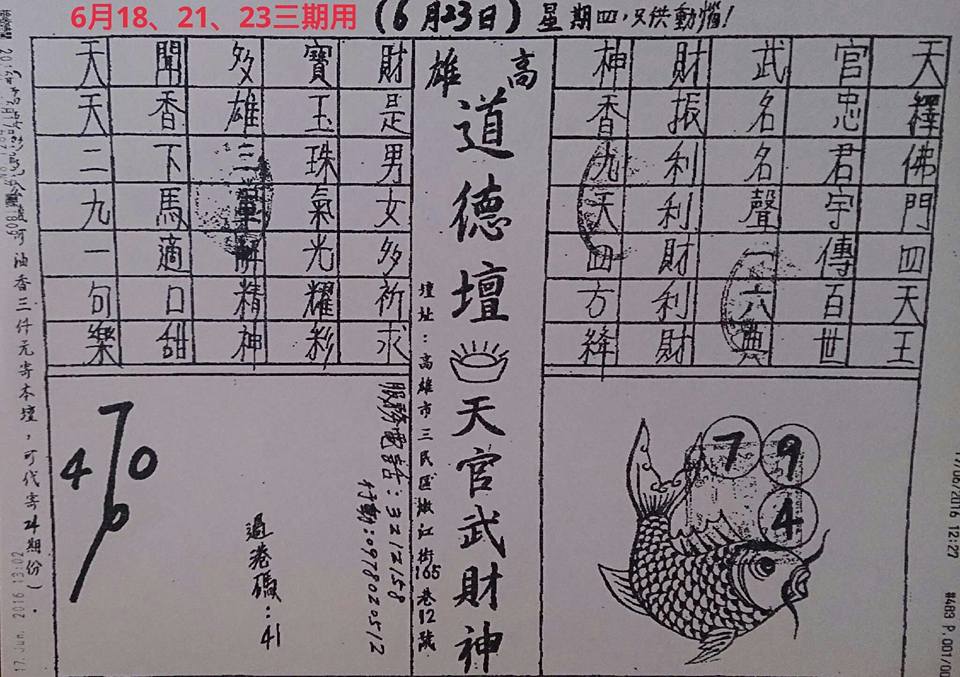 6月18、21、23三期用
(6月23日)星期四,只供動惱!
天釋佛門四天王
官忠君宇傳百世
武名名聲一六典
財振利利財利財
神香九天四方絳
高雄
道德壇
天官武財神
壇址:高雄市三民區嫩江街165巷12號
財是男女多祈求
寶玉珠氣光耀彩
多雄三單解精神
聞香下馬適口甜
天天二九一句樂
7 9
4
服務電話:3212158
行動:0978020512
過港碼:41
7
4 0
6
油香三仟元寄本壇,可代寄24期份).
17. Jun. 2016 13:02
17/06/2016 12:27
#483 P.001/00